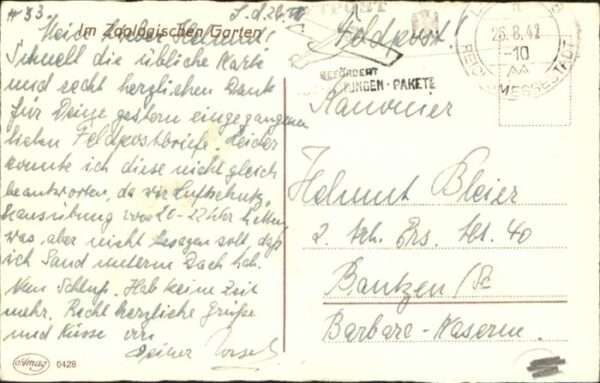 # 33.
L.d. 26.
Im Zoologischen Garten
Mein lieber
Schnell die übliche Karte
und recht herzlichen Dank
für Deine gestern eingegangenen
lieben Feldpostbriefe. Leider
konnte ich diese nicht gleich
beantworten, da wir Luftschutz-
hausübung von 20-22 Uhr hatten,
was aber nicht besagen soll, daß
ich Sand unterm Dach hab.
Nun Schluß. Hab keine Zeit
mehr. Recht herzliche Grüße
und Küsse von
Deiner
Amag 0428
BEFÖRDERT
PAKETE
26.8.42
-10
REICHSMESSESTADT
Feldpost!
Kanonier
Helmut Bleier
2. Sch. Brs. Abt. 40
Bautzen /Sa
Barbara-Kaserne.